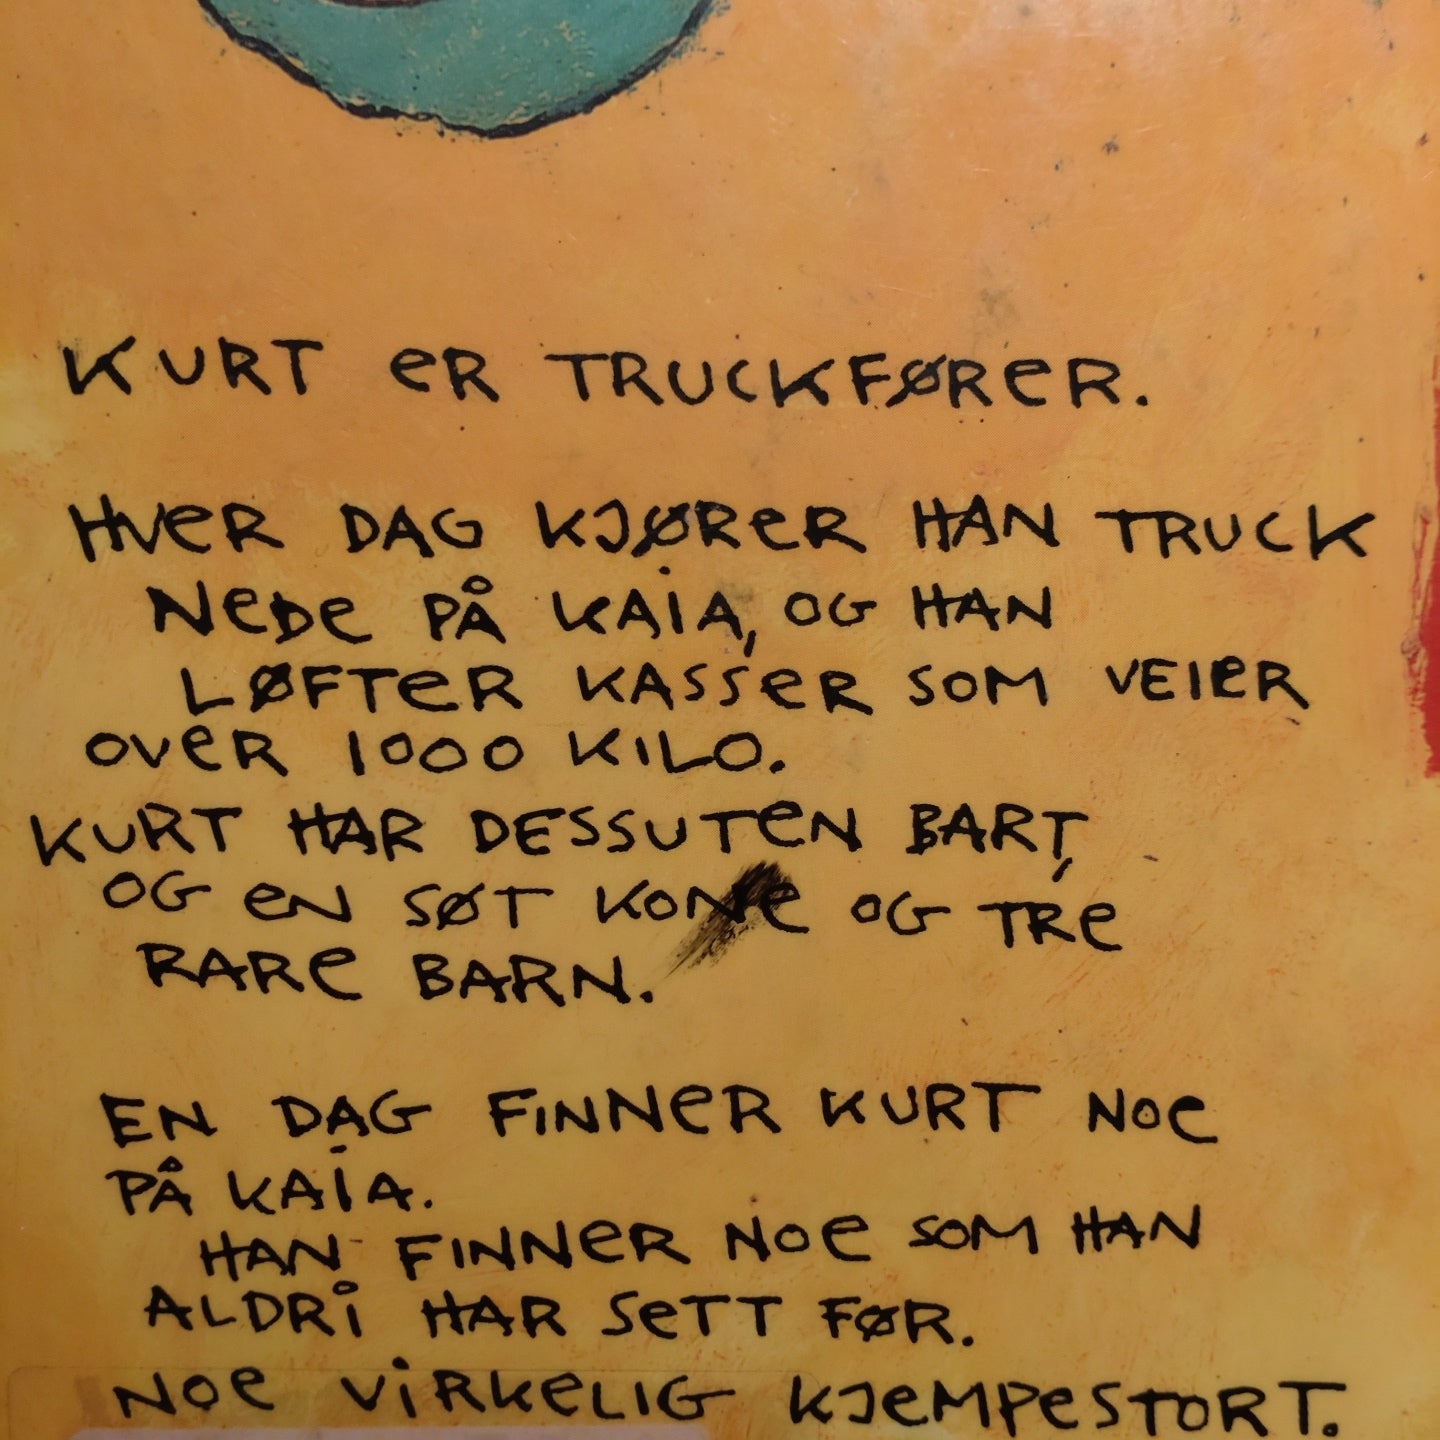 KURT eR TRUCKFØReR.
HVeR DAG KJØReR HAN TRUCK
NeDe PÅ KAiA, OG HAN
LØFTeR KASSeR SOM VEIeR
OVeR 1000 KILO.
KURT HAR DESSUTeN BART,
OG eN SØT KONe OG TRe
RARe BARN.
EN DAG FINNeR KURT NOe
PÅ KAiA.
HAN FINNeR NOe SOM HAN
ALDRi HAR SeTT FØR.
NOe ViRKeLIG KJeMPeSTORT.